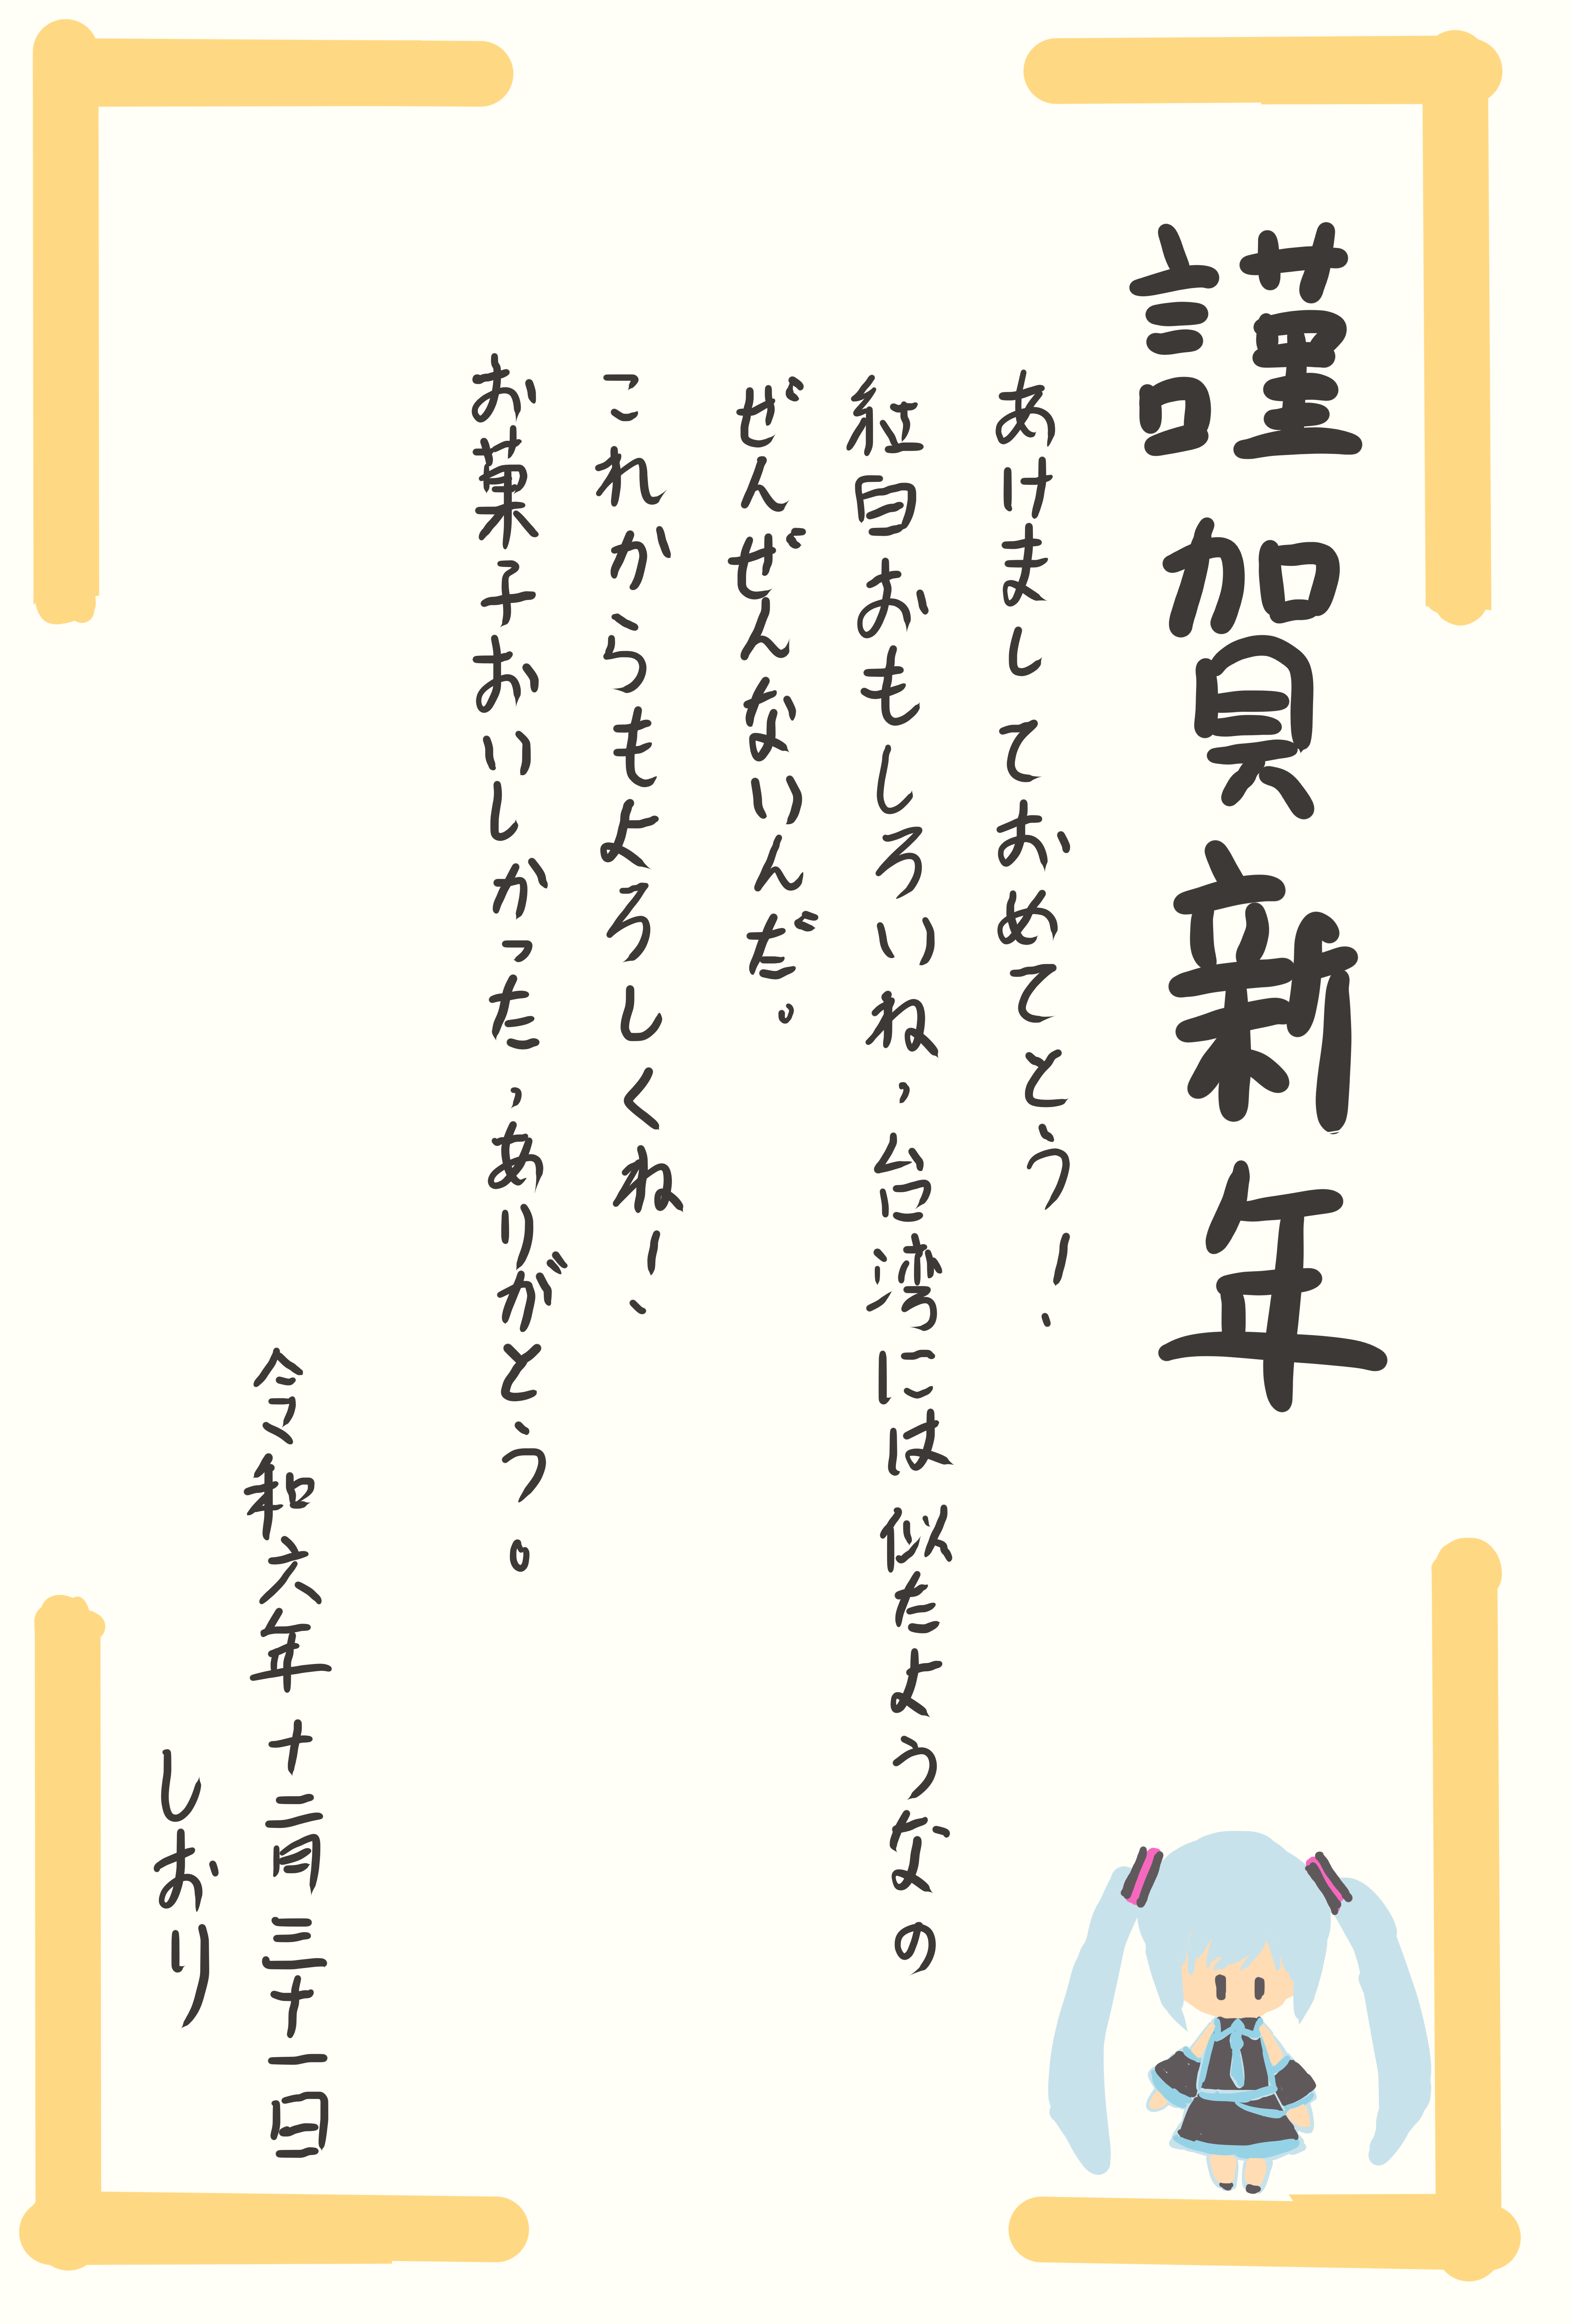 謹賀新年
あけましておめてとう！
経向おもしろいね、台湾には似たようなの
ぜんぜんないんだ。
これからもよろしくね！
お菓子おいしかった、ありがとう。
令和六年十二月三十一日
しおり